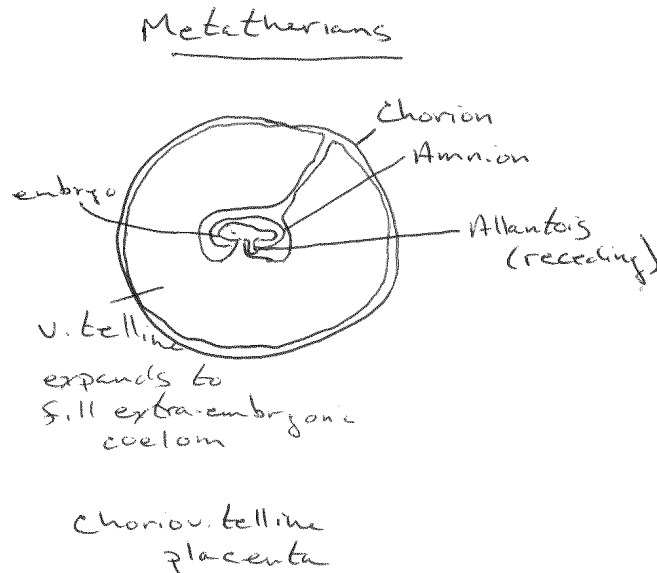 Metatherians
Chorion
Amnion
embryo
Allantois
(receding)
vitelline
expands to
fill extra-embryonic
coelom
choriovitelline
placenta